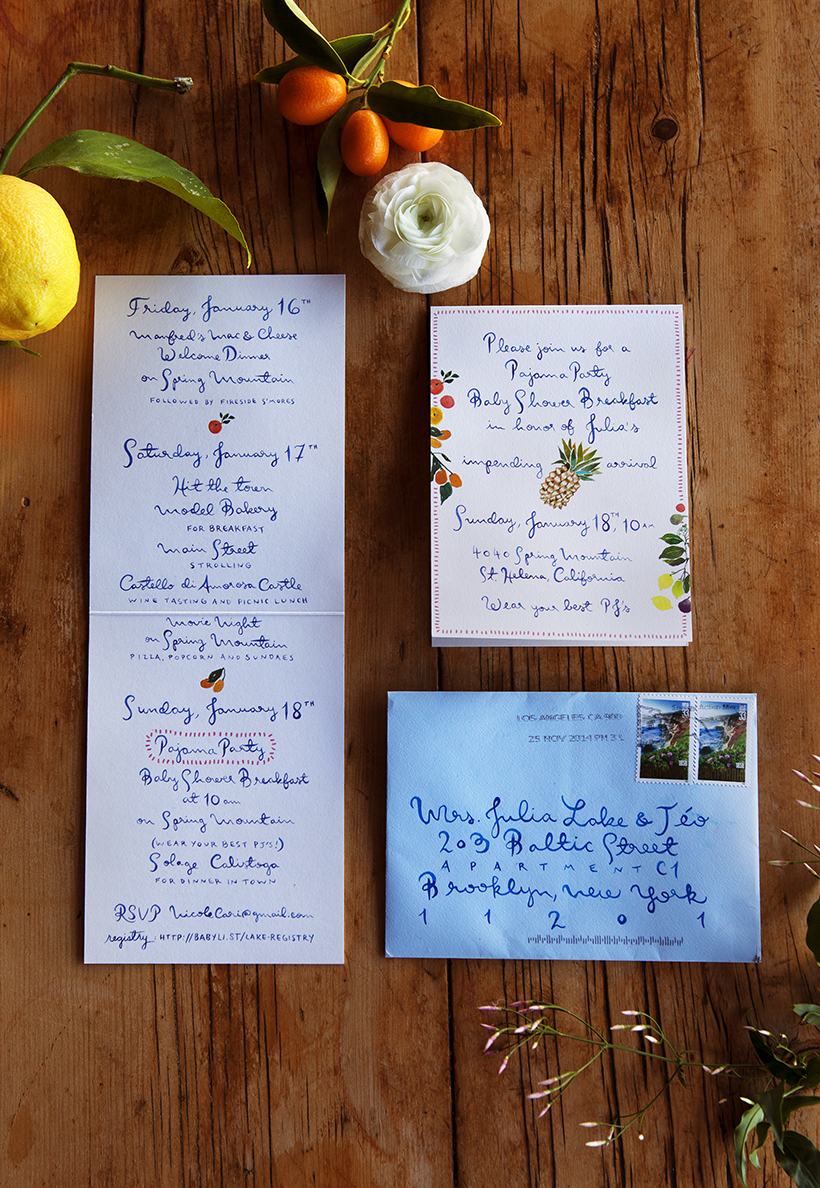 Friday, January 16TH
Manfred's Mac & Cheese
Welcome Dinner
on Spring Mountain
FOLLOWED BY FIRESIDE S'MORES
Saturday, January 17TH
Hit the town
Model Bakery
FOR BREAKFAST
Main Street
STROLLING
Castello di Amorosa Castle
WINE TASTING AND PICNIC LUNCH
Movie Night
on Spring Mountain
PIZZA, POPCORN AND SUNDAES
Sunday, January 18TH
Pajama Party
Baby Shower Breakfast
at 10 am
on Spring Mountain
(WEAR YOUR BEST PJ'S!)
Solage Calistoga
FOR DINNER IN TOWN
RSVP NicoleCari@gmail.com
registry: HTTP://BABYLI.ST/LAKE-REGISTRY
Please join us for a
Pajama Party
Baby Shower Breakfast
in honor of Julia's
impending arrival
Sunday, January 18th, 10 AM
4040 Spring Mountain
St. Helena, California
Wear your best PJ's
LOS ANGELES CA 900
25 NOV 2014 PM 3 L
Mrs. Julia Lake & Téo
203 Baltic Street
APARTMENT C1
Brooklyn, New York
11201